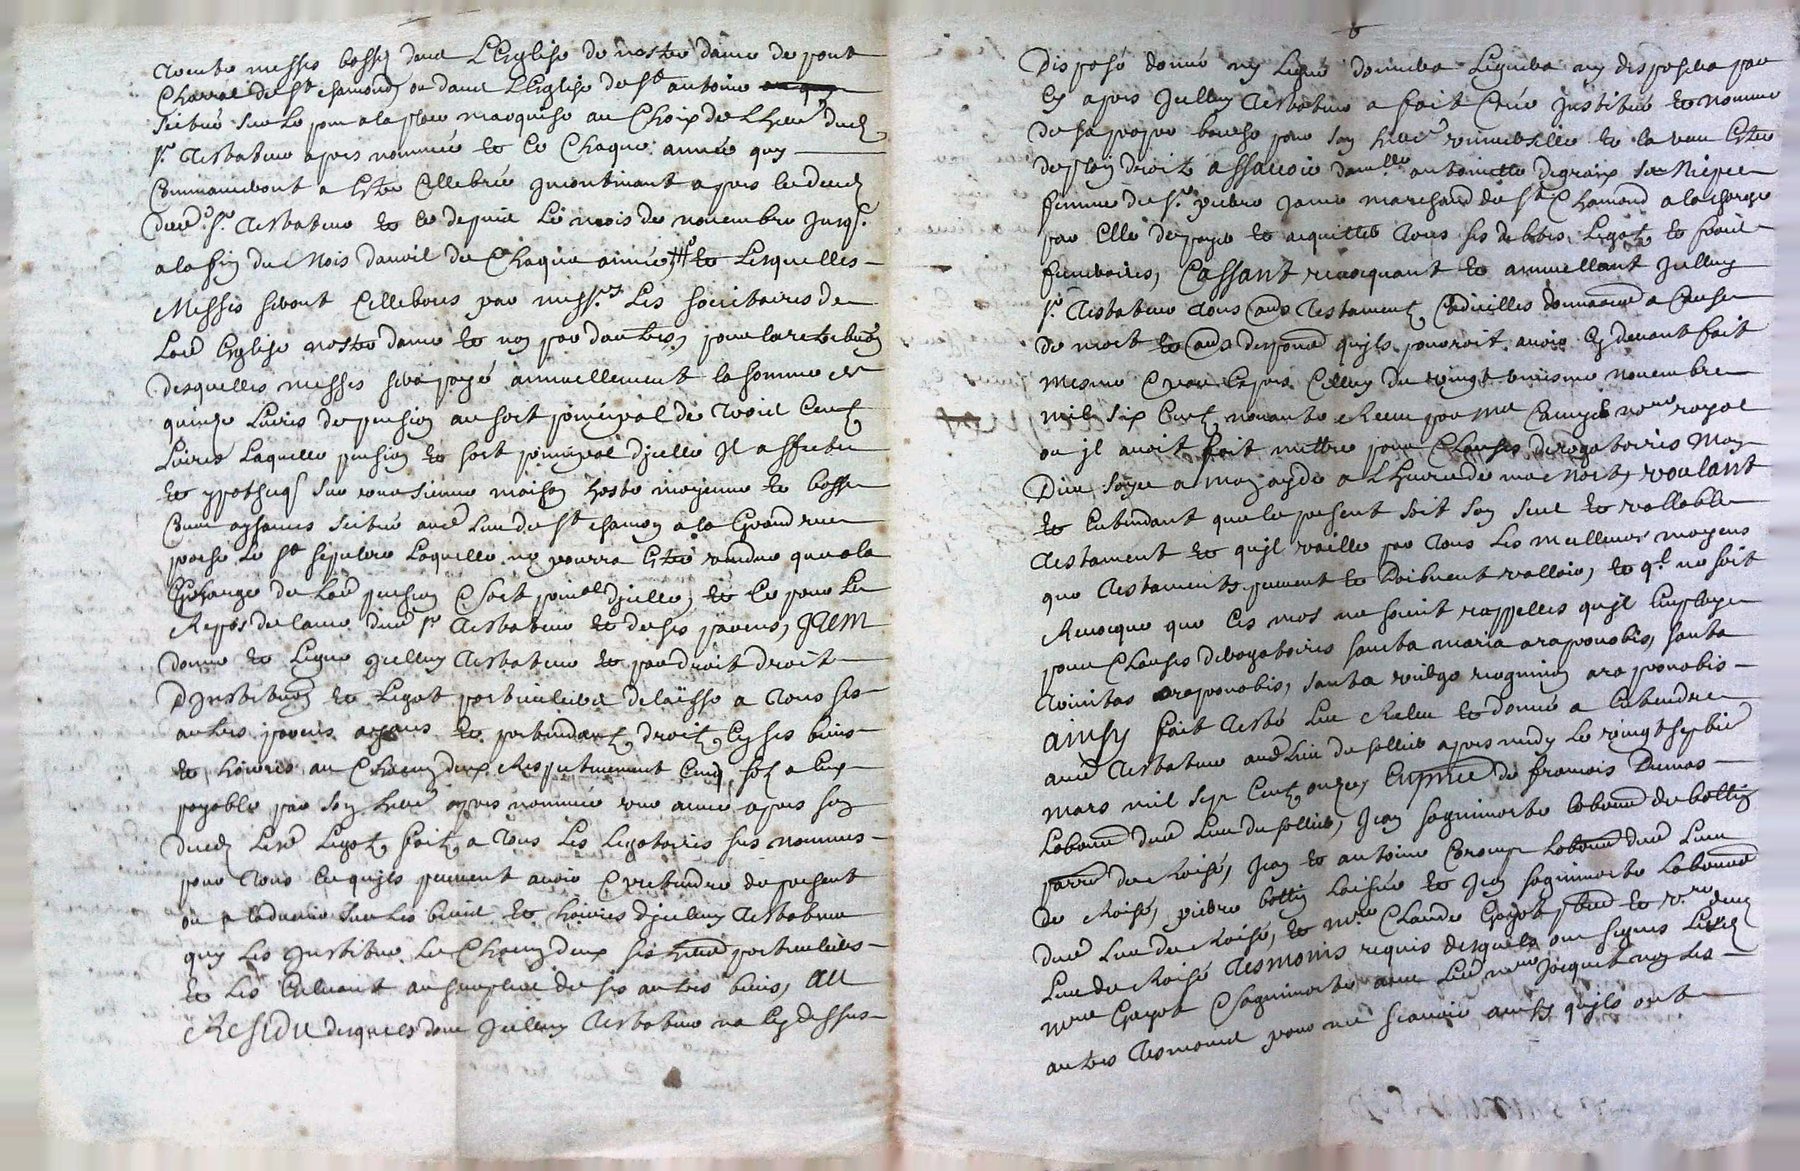 trente messes basses dans L'Eglise de nostre dame de pont
Charral de St chamond, ou dans L'Eglise de St antoine
scitué sur le pon a la place marquise au Choix de L'her dud
sr. testateur apres nommée et ce Chaque année quy
Commanceront a Estre Cellebrée incontinant apres le deced
dud. sr. testateur et ce depuis Le mois de novembre jusq.
a la fin du Mois davril de Chaque année, et Lesquelles
Messes seront Cellebrées par messrs Les societaires de
Lad Eglise nostre dame et non par dautres, pour la retribuon
desquelles messes sera payé annuellement la somme de
quinze Livres de pension au sort principal de trois Cent
Livres Laquelle pension et sort principal d'jcelle Il affecte
et ypotheq sur une sienne maison haste moyenne et basse
scitué aud Lieu de St chamon a la Grand rue
St sepulcre Laquelle ne pourra Estre vendue qu'a la
Charge de Lad pension & sort pnal djcelle, et ce pour Le
Repos de lame dud sr testateur et de ses parens, JTEM
donne et Legue Jcelluy testateur et par droit droit
D'Jnstituon et Legat particulier delaisse a tous ses
autres parens et pretendant droit En ses biens
et hoiries, au Chacun deux Respectivement Cinq sols
payable par son her apres nommée une année apres son
deced Lesd Legat, faits a tous Les Legataires sus nommes
pour tous ce qu'ils peuvent avoir & pretendre de present
ou a ladvenir sur Les biens et hoiries d'jcelluy testateur
quy Les Jnstitue Le Chacun deux ses heers particuliers
et Les Excluant au surplus de ses autres biens, AU
RESIDU desquels dont Jcelluy testateur na Cy dessus
Disposé donné ny Legué donnera Leguera ny disposera par
Cy apres Jcelluy testateur a fait Crée Jnstitué et nommé
de sa propre bouche pour son her universelle et la veu Estre
de plein droit assavoir damlle antoinette degraix sa Niepce
femme de sr. pierre Jamé marchand de St Chamond a la charge
par Elle de payer et acquitter tous ses debtes, Legats et frais
funeraires, CASSANT revocquant et annullant Jcelluy
sr. testateur tous aud testament, Codicilles donnaons a Cause
de mort et aud disponon qu'ils pourroit avoir Cy devant fait
mesme & par Exprès Celluy du vingt unieme novembre
mil six Cent, nonante Receu par Me Camyer nore royal
ou jl avoit fait mettre pour Clauses derogatoires Mon
Dieu soyer a mon ayde a L'Heure de ma Mort, voulant
et Entendant que le present soit son seul et vallable
testament et qu'jl vaille par tous Les meilleurs moyens
que testaments peuvent et doibvent valloir, et ql ne soit
Revocque que Ces mos ne soient rappelles qu'jl Employe
pour Clauses derogatoires sancta maria ora pro nobis, santa
trinitas ora pro nobis, santa virdgo virginum ora pro nobis
AINSY fait testé Leu Releu et donné a Entendre
aud testateur aud Lieu de sellieu apres midy Le vingt sept
mars mil sept Cent onze, En pnce de francois Dumas
Labour dud Lieu de sellieu, Jean sagnimorte labour de
parre de Roisé, Jean et antoine Labour dud Lieu
de Roisé, pierre bottin Laisné et Jean sagnimorte Labour
dud Lieu de Roisé, et mre Claude Gayot pbre et vre dud
Lieu de Roisé tesmoins requis desquels ont signes Lesd
mre Gayot & sagnimorte avec Led nore Jacquet non Les
autres tesmoins pour ne scavoir ainsy qu'ils ont